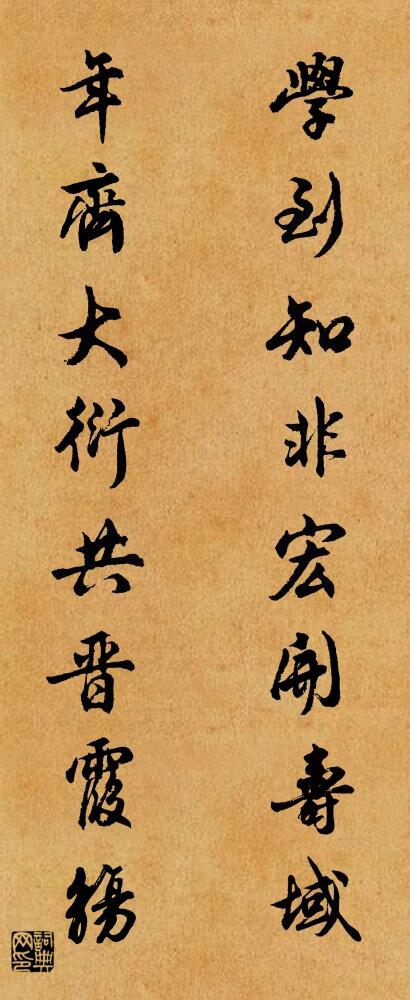 學到知非宏開壽域
年齊大衍共晉霞觴
詞典网印